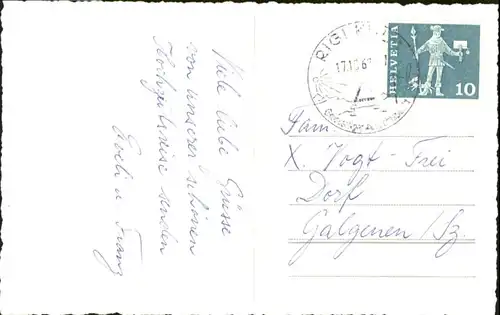 Viele liebe Grüsse
von unserer schönen
Hochzeitsreise senden
Eveli u. Franz
RIGI
17.10.6
HELVETIA
10
Fam.
X. Vogt-Frei
Dorf
Galgenen/Sz.